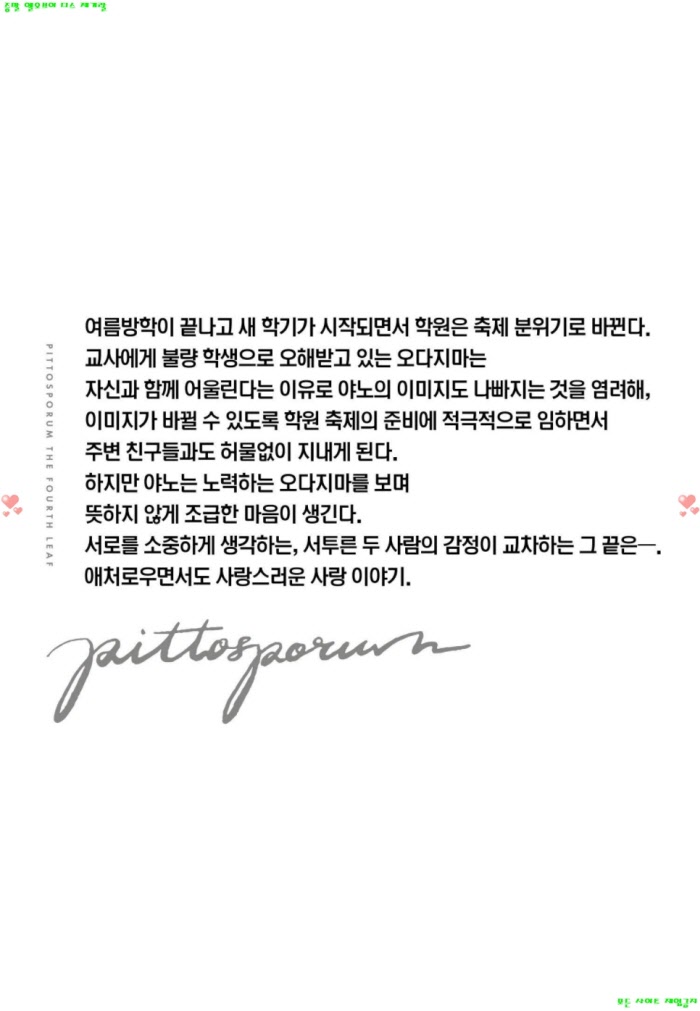 여름방학이 끝나고 새 학기가 시작되면서 학원은 축제 분위기로 바뀐다.
교사에게 불량 학생으로 오해받고 있는 오다지마는
자신과 함께 어울린다는 이유로 야노의 이미지도 나빠지는 것을 염려해,
이미지가 바뀔 수 있도록 학원 축제의 준비에 적극적으로 임하면서
주변 친구들과도 허물없이 지내게 된다.
하지만 야노는 노력하는 오다지마를 보며
뜻하지 않게 조급한 마음이 생긴다.
서로를 소중하게 생각하는, 서투른 두 사람의 감정이 교차하는 그 끝은―.
애처로우면서도 사랑스러운 사랑 이야기.
PITTOSPORUM THE FOURTH LEAF
pittosporum
모든 사이트